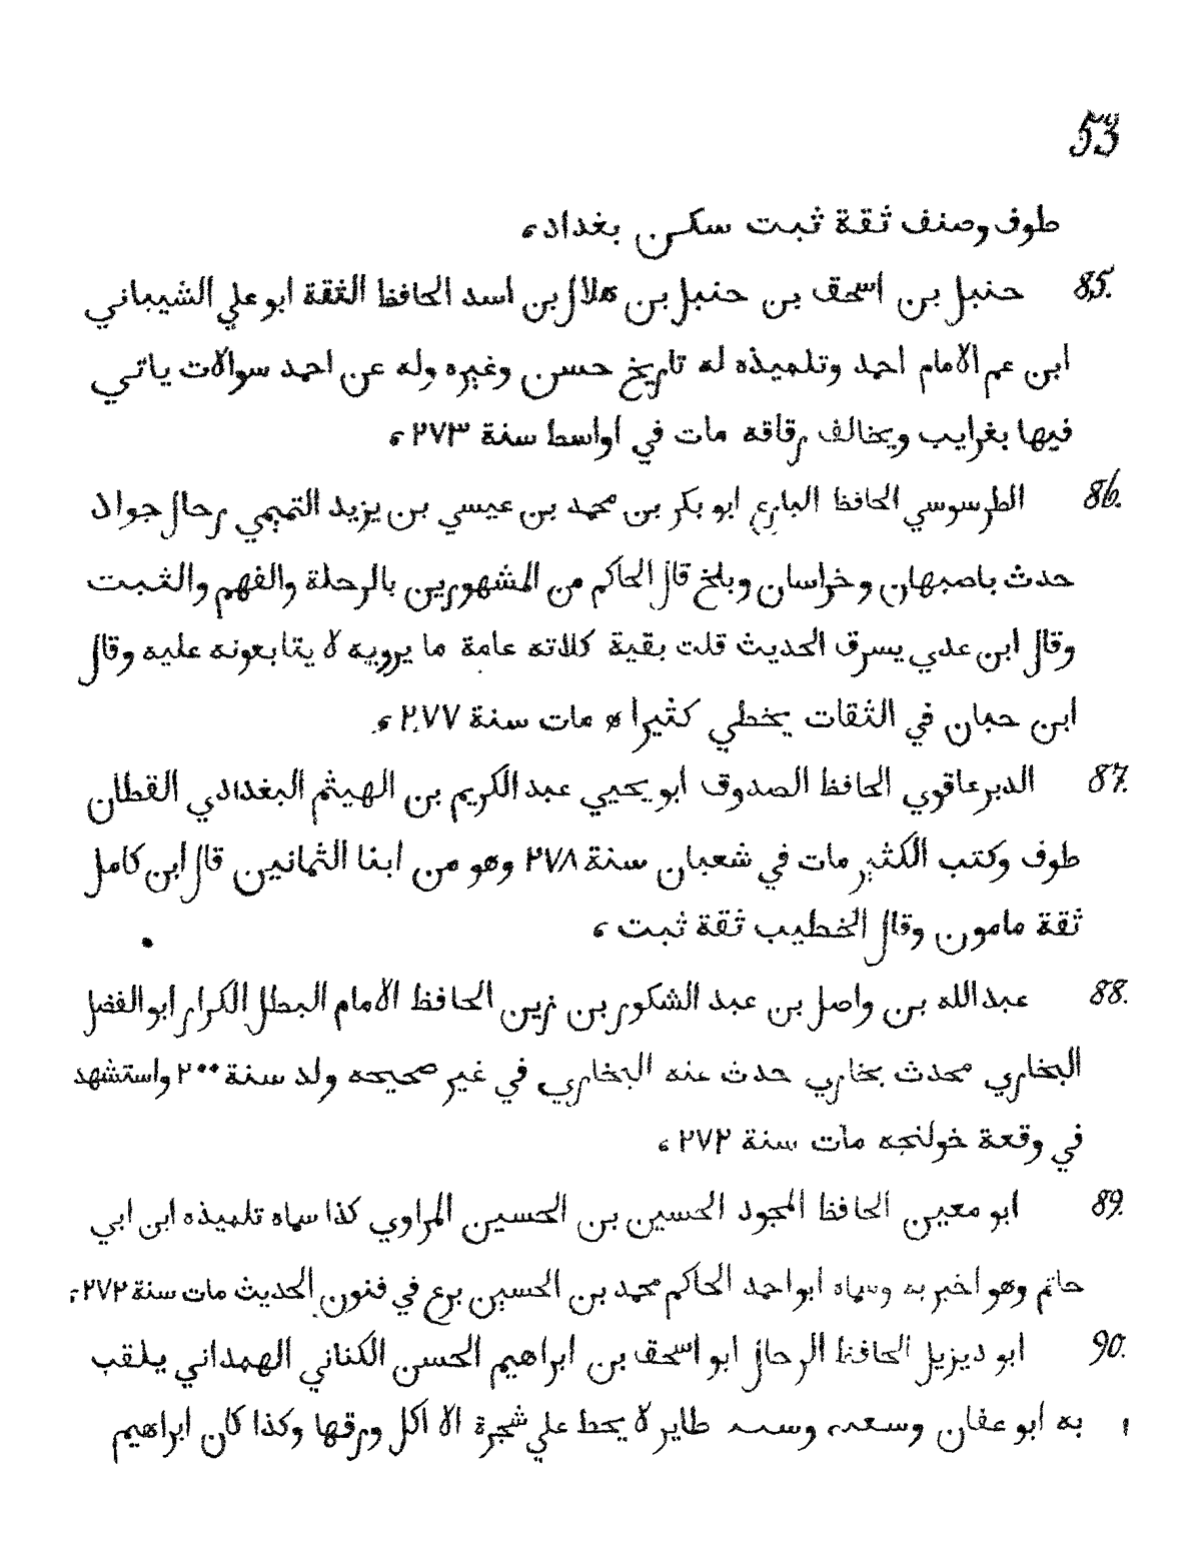 53
طوف وصنف ثقة ثبت سكن بغداد،
85. حنبل بن اسحق بن حنبل بن هلال بن اسد الحافظ الثقة ابو علي الشيباني
ابن عم الامام احمد وتلميذه له تاريخ حسن وغيره وله عن احمد سوالات ياتي
فيها بغرايب ويخالف رقاقه مات في اواسط سنة ٢٧٣،
86. الطرسوسي الحافظ البارع ابو بكر بن محمد بن عيسي بن يزيد التميمي رحال جواد
حدث باصبهان وخراسان وبلخ قال الحاكم من المشهورين بالرحلة والفهم والثبت
وقال ابن عدي يسرق الحديث قلت بقية كلاته عامة ما يرويه لا يتابعونه عليه وقال
ابن حبان في الثقات يخطي كثيرا مات سنة ٢٧٧،
87. الديرعاقوي الحافظ الصدوق ابو يحيي عبد الكريم بن الهيثم البغدادي القطان
طوف وكتب الكثير مات في شعبان سنة ٢٧٨ وهو من ابنا الثمانين قال ابن كامل
ثقة مامون وقال الخطيب ثقة ثبت،
88. عبد الله بن واصل بن عبد الشكور بن زين الحافظ الامام البطل الكرار ابو الفضل
البخاري محدث بخاري حدث عنه البخاري في غير صحيحه ولد سنة ٢٠٠ واستشهد
في وقعة خولنجه مات سنة ٢٧٢،
89. ابو معين الحافظ المجود الحسين بن الحسين المراوي كذا سماه تلميذه ابن ابي
حاتم وهو اخبر به وسماه ابو احمد الحاكم محمد بن الحسين برع في فنون الحديث مات سنة ٢٧٢،
90. ابو ديزيل الحافظ الرحال ابو اسحق بن ابراهيم الحسن الكناني الهمداني يلقب
به ابو عفان طاير لا يحط علي شجرة الا اكل ورقها وكذا كان ابراهيم